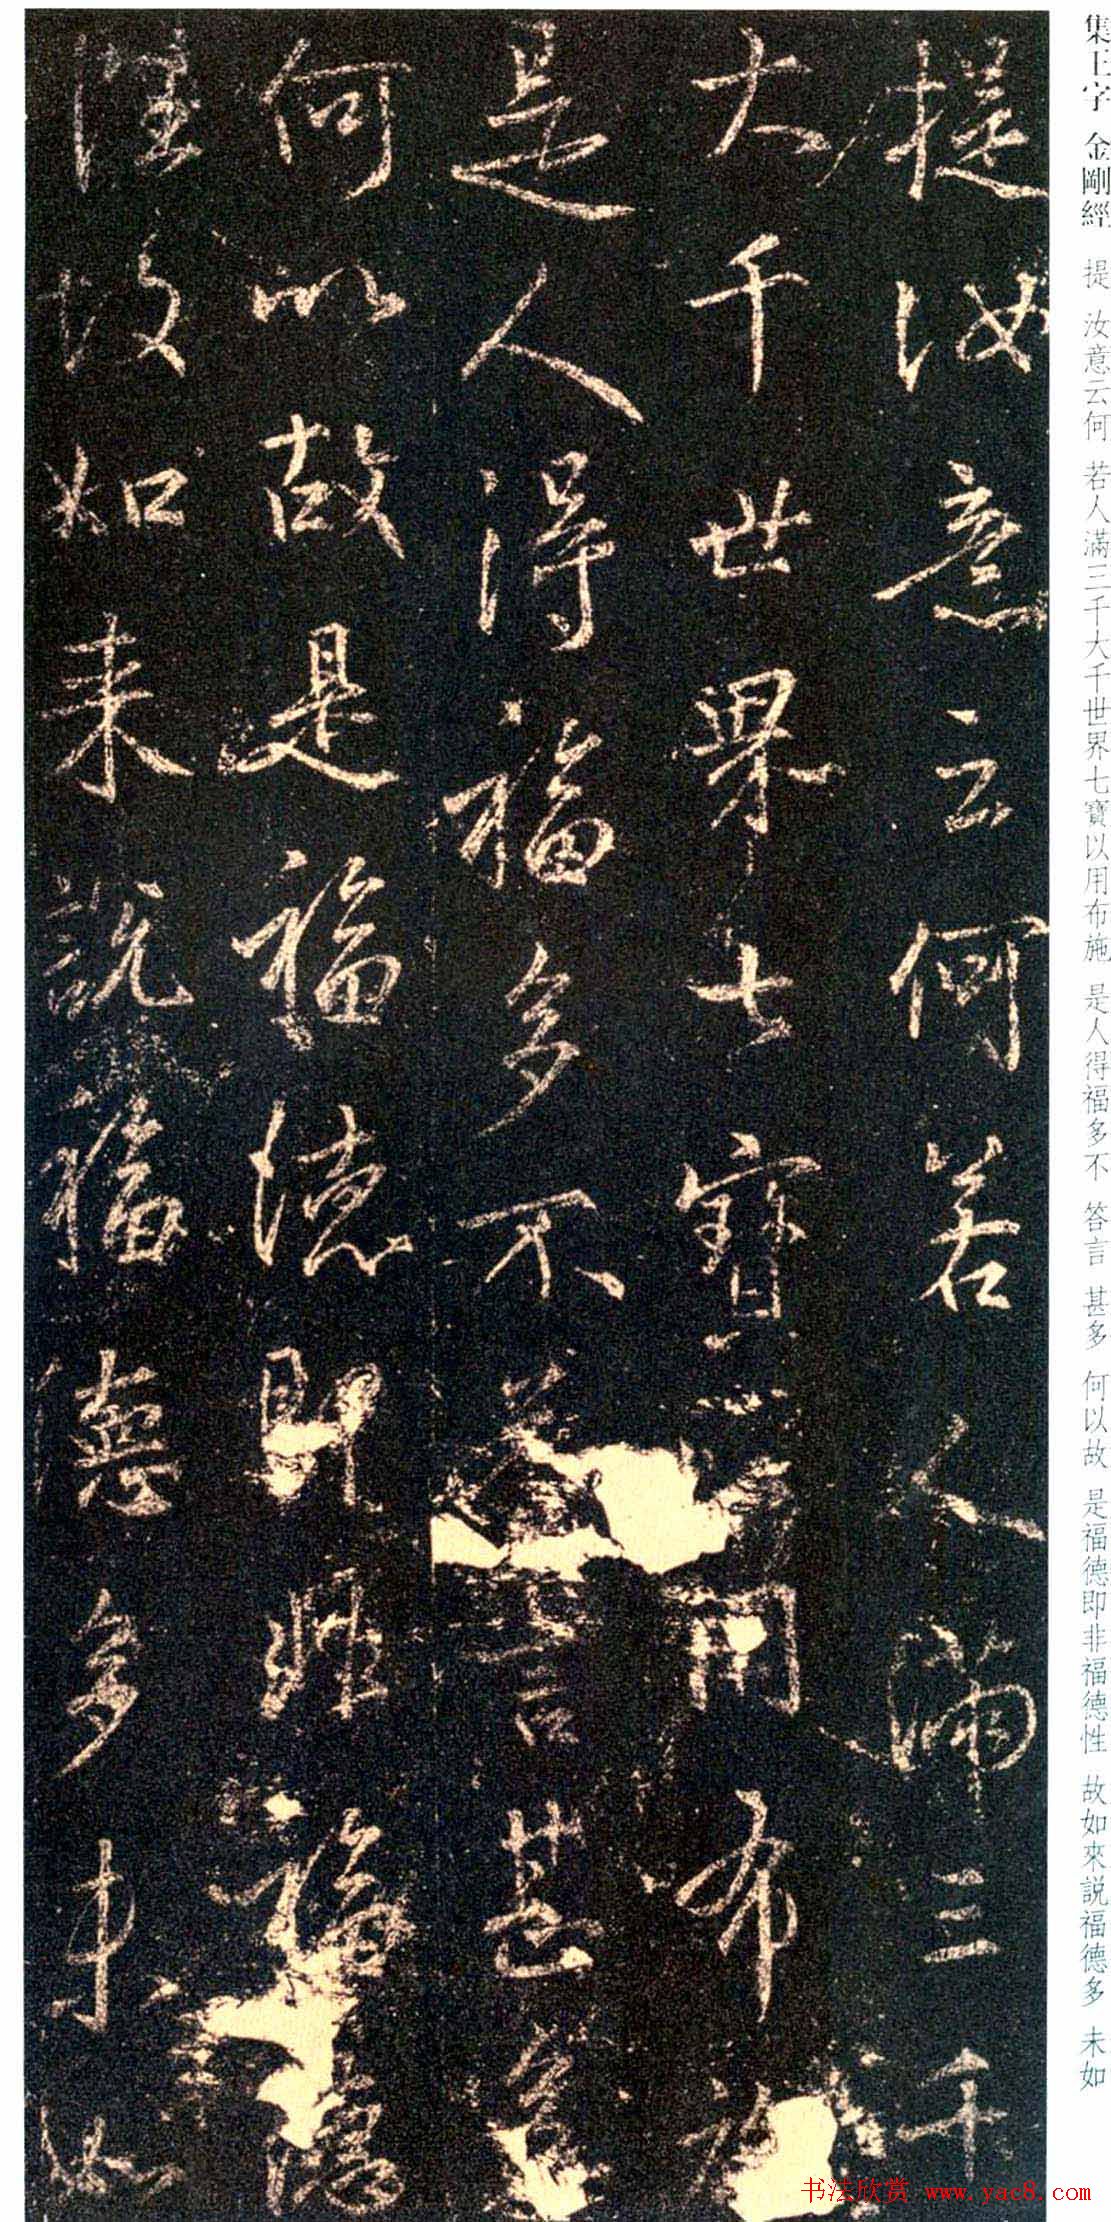 集王字 金剛經 提 汝意云何 若人滿三千大千世界七寶以用布施 是人得福多不 答言 甚多 何以故 是福德即非福德性 故如來説福德多 未如
提汝意云何若人滿三千
大千世界七寶以用布施
是人得福多不答言甚多
何以故是福德即非福德
性故如来說福德多未如
书法欣赏 www.yac8.com